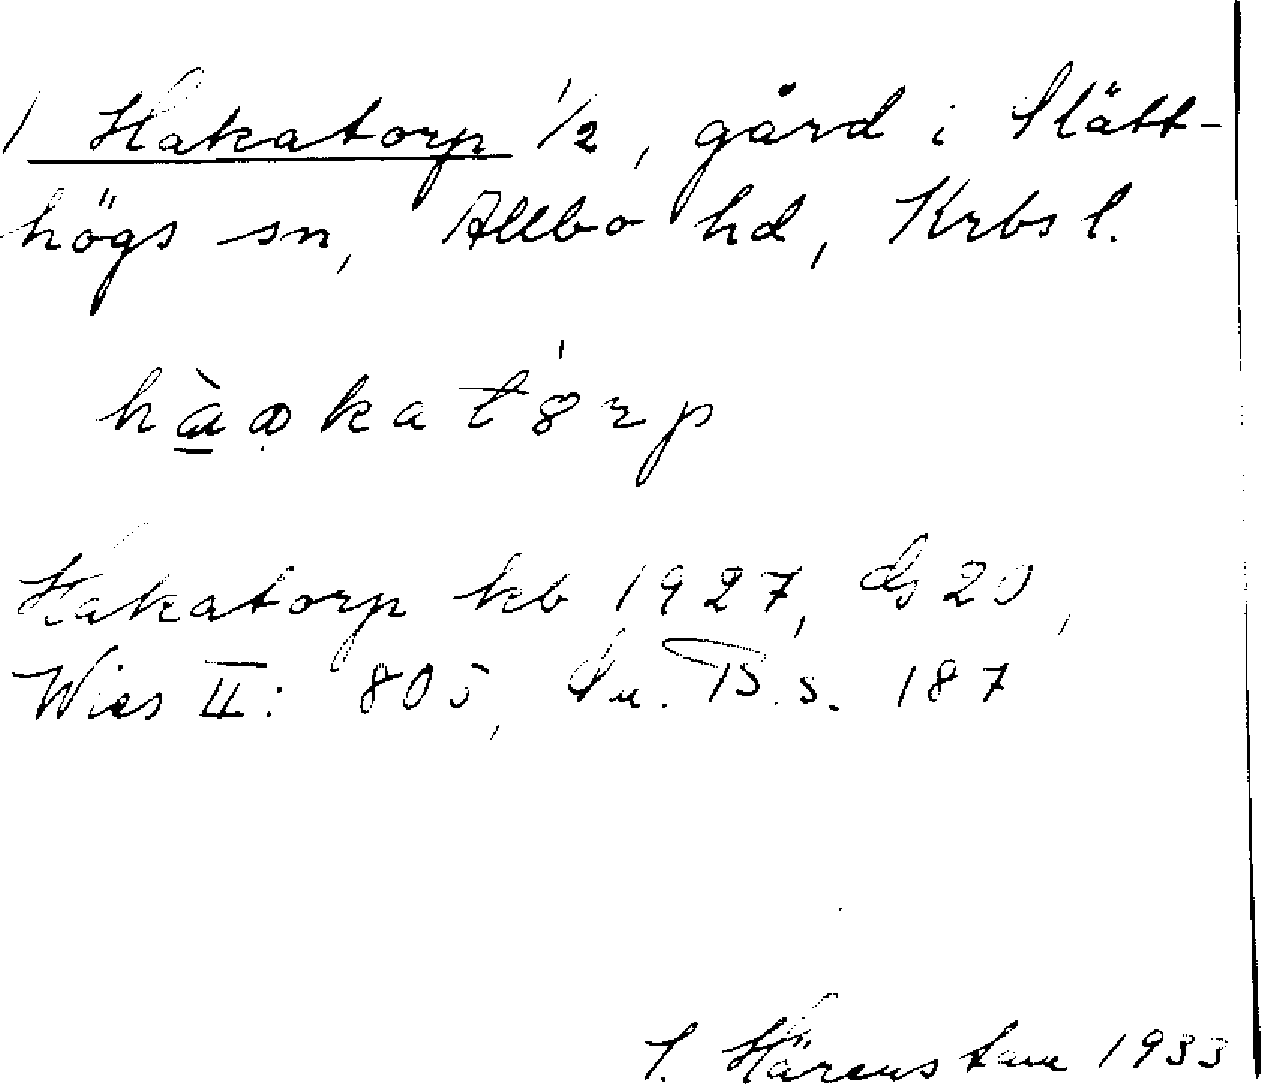 1 Hakatorp 1/2, gård i Slätt-
högs sn, Allbo hd, Krbs l.
Hakatorp kb 1927, ds 20,
Wies II: 805, Su. B. s. 187
S. Härenstam 1933